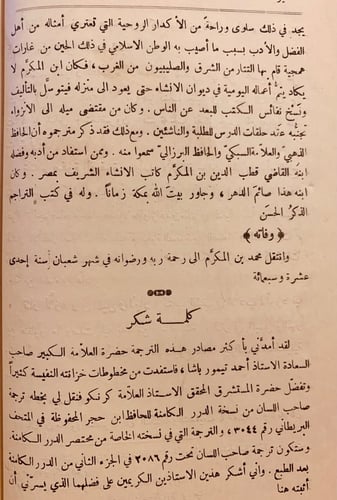 يجد في ذلك سلوى وراحةً من الأكدار الروحية التي تعتري أمثاله من أهل
الفضل والأدب بسبب ما أصيب به الوطن الاسلامي في ذلك الحين من غارات
همجية قام بها التتار من الشرق والصليبيون من الغرب، فكان ابن المكرَّم لا
يكاد يتمُّ أعماله اليومية في ديوان الانشاء حتى يعود الى منزله فيتوسَّل بالتأليف
ونَسْخ نفائس الكتب للبعد عن الناس. وكان من مقتضى ميله الى الانزواء
تجنُّبه عقد حلقات الدرس للطلبة والناشئين. ومع ذلك فقد ذكر مترجموه أن الحافظ
الذهبيّ والعلامة السبكيّ والحافظ البرزاليّ سمعوا منه. وممن استفاد من أدبه وفضله
ابنه القاضي قطب الدين بن المكرَّم كاتب الانشاء الشريف بمصر. وكان
ابنه هذا صائمَ الدهر، وجاور بيتَ الله بمكة زماناً. وله في كتب التراجم
الذكرُ الحَسَن
﴿ وفاته ﴾
وانتقل محمد بن المكرَّم الى رحمة ربه ورضوانه في شهر شعبان سنة إحدى
عشرة وسبعمائة
كلمة شكر
لقد أمدَّني بأكثر مصادر هذه الترجمة حضرة العلامة الكبير صاحب
السعادة الاستاذ أحمد تيمور باشا، فاستفدت من مخطوطات خزانته النفيسة كثيراً
وتفضَّل حضرة المستشرق المحقق الاستاذ العلامة كرنكو فنقل لي بخطه ترجمة
صاحب اللسان من نسخة الدرر الكامنة للحافظ ابن حجر المحفوظة في المتحف
البريطاني رقم ٣٠٤٤، والترجمة التي في نسخته الخاصة من مختصر الدرر الكامنة.
وستكون ترجمة صاحب اللسان تحت رقم ٢٠٨٦ في الجزء الثاني من الدرر الكامنة
بعد الطبع. واني أشكر لهذين الاستاذين الكريمين على فضلهما الذي يسرّني أن
أثبته هنا